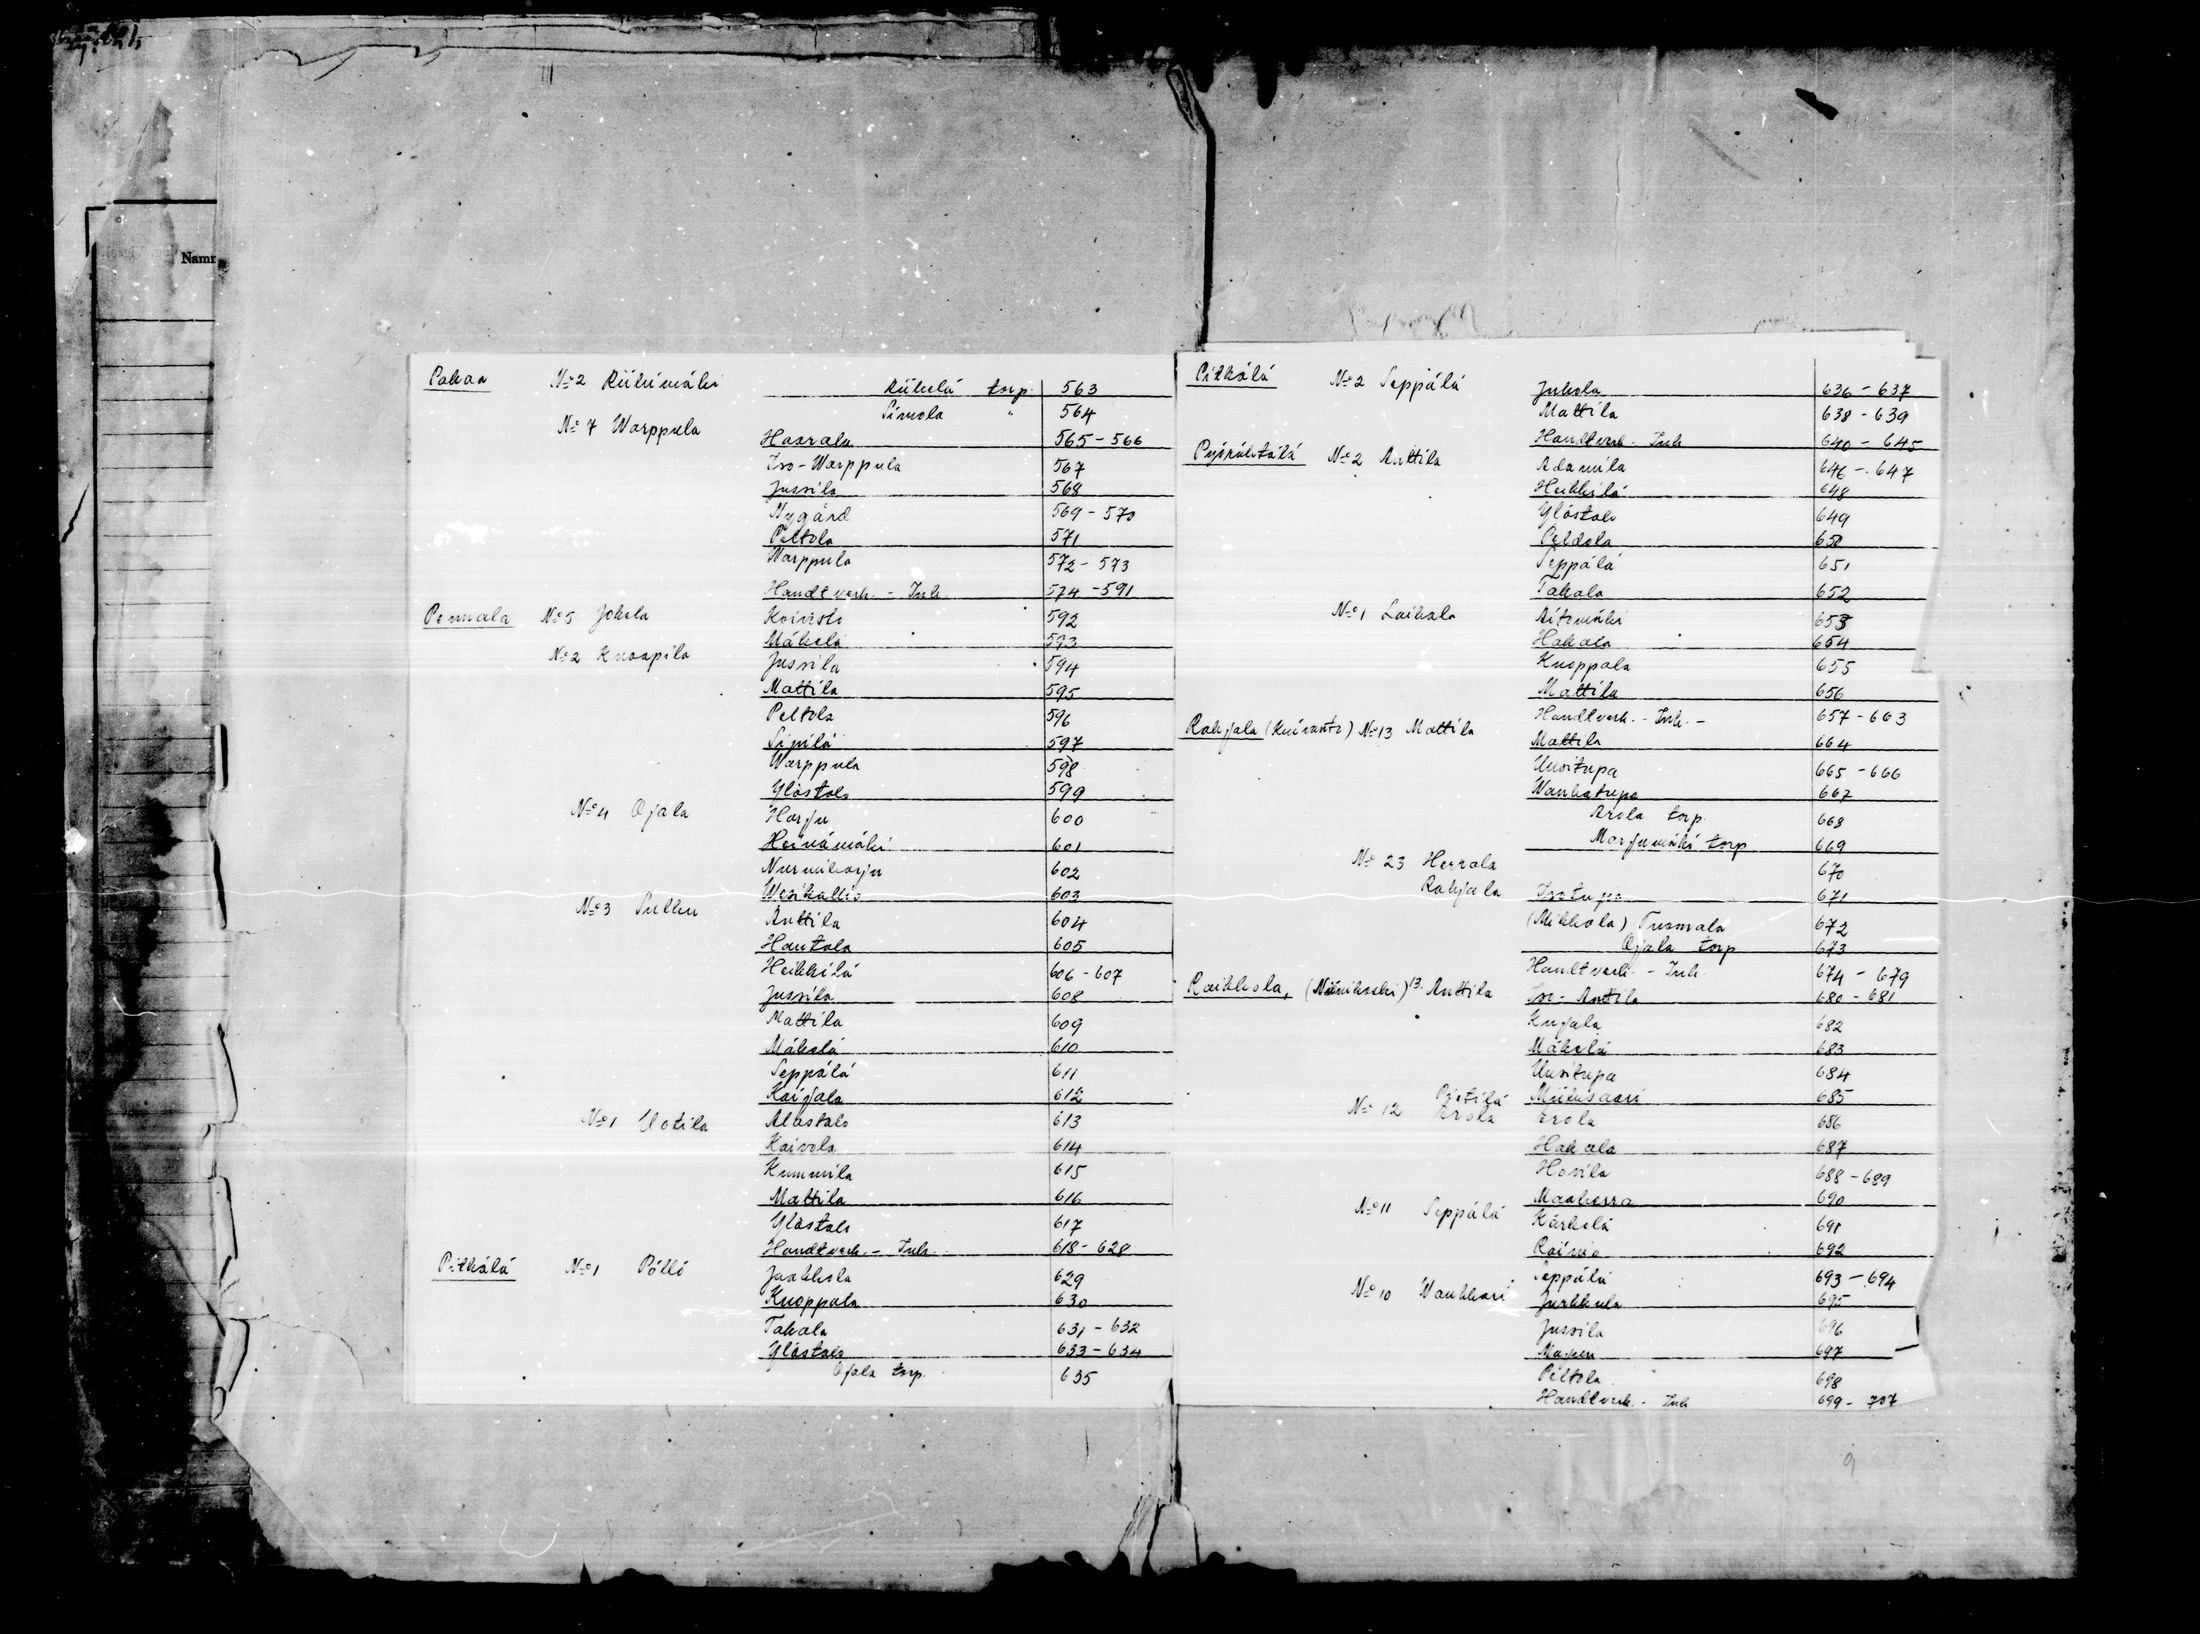 Namn
Pakaa № 2 Riihimäki Riihelä torp. 563
Simola " 564
№ 7 Warppula Haarala 565 - 566
Iso-Warppula 567
Jussila 568
Nygård 569 - 570
Peltola 571
Warppula 572 - 573
Handtverk. - Inh. 574 - 591
Pennala № 5 Jokela Koivisto 592
Mäkelä 593
№ 2 Knaapila Jussila 594
Mattila 595
Peltola 596
Sipilä 597
Warppula 598
Ylöstalo 599
№ 4 Ojala Harju 600
Heinämäki 601
Nurmiharju 602
Wesikallio 603
№ 3 Pullin Anttila 604
Hautala 605
Heikkilä 606 - 607
Jussila 608
Mattila 609
Mäkelä 610
Seppälä 611
Kaijala 612
№ 1 Uotila Alastalo 613
Kaivola 614
Kummila 615
Mattila 616
Ylöstalo 617
Handtverk. - Inh. 618 - 628
Pitkälä № 1 Pölli Jaakkola 629
Knoppala 630
Takala 631 - 632
Ylöstalo 633 - 634
Ojala torp. 635
Pitkälä № 2 Seppälä Juhola 636 - 637
Mattila 638 - 639
Handtverk. Inh 640 - 645
№ 2 Anttila Adamila 646 - 647
Heikkilä 648
Ylöstalo 649
Peldola 650
Seppälä 651
Takala 652
№ 1 Laihala Aitomäki 653
Hakala 654
Knoppala 655
Mattila 656
Handtverk. - Inh. - 657 - 663
Rahjala (Kuivanto) № 13 Mattila Mattila 664
Uusitupa 665 - 666
Wanhatupa 667
Arola torp. 668
Marjumäki torp 669
№ 23 Herrala 670
Rahjala Isotupa 671
(Mikkola) Tuomala 672
Ojala torp 673
Handtverk. - Inh. 674 - 679
Raikkola, (Niinikoski) 13. Anttila Iso-Anttila 680 - 681
Kujala 682
Mäkelä 683
Uusitupa 684
Pietilä Miikusaari 685
№ 12 Erola Erola 686
Hakala 687
Hosila 688 - 689
Maaherra 690
№ 11 Seppälä Kärkelä 691
Raimo 692
Seppälä 693 - 694
№ 10 Wankkari Jurkkola 695
Jussila 696
697
Peltola 698
Handtverk. - Inh 699 - 707
9